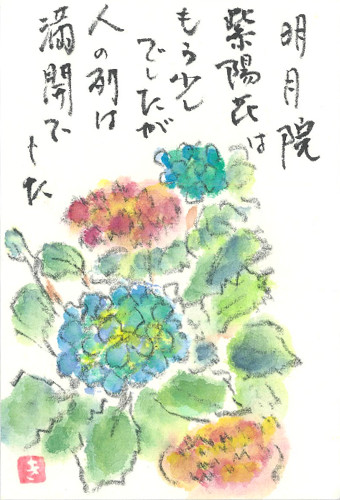 明月院
紫陽花は
もう少し
でしたが
人の列は
満開でした
き